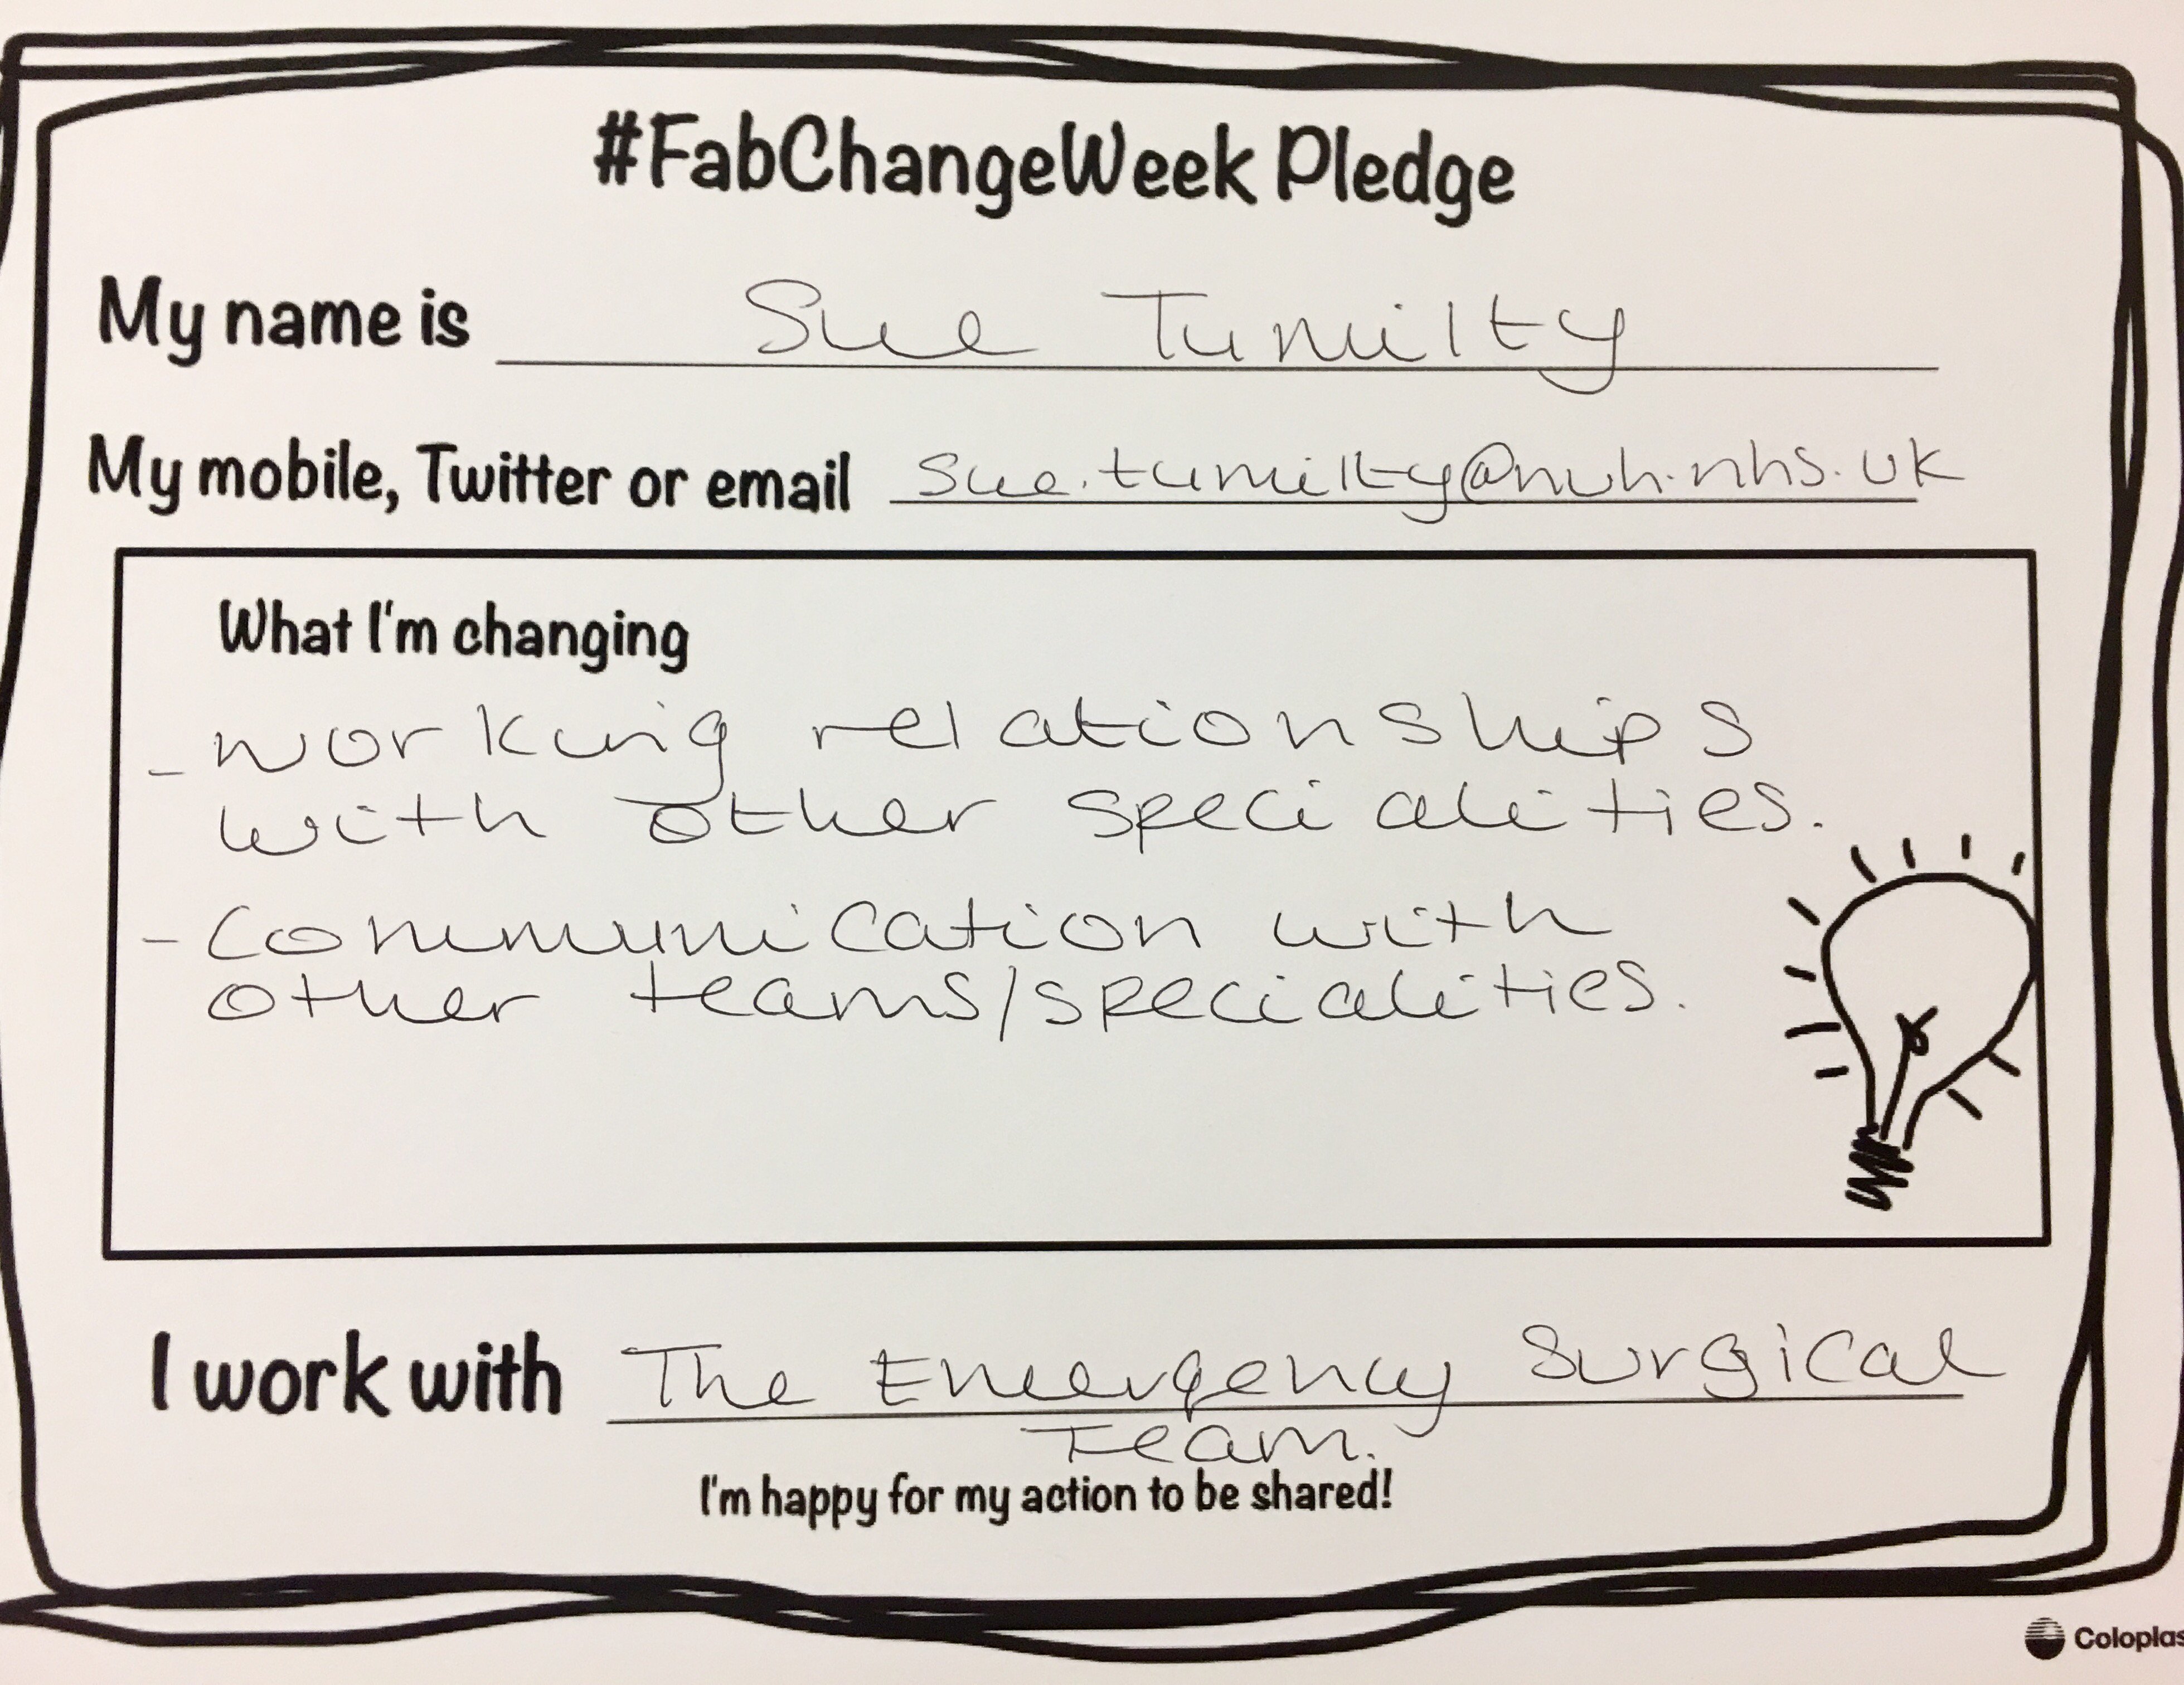 #FabChangeWeek Pledge
My name is Sue Tumilty
My mobile, Twitter or email sue.tumilty@nuh.nhs.uk
What I'm changing
- working relationships
with other specialities.
- Communication with
other teams/specialities.
I work with The Emergency Surgical
Team.
I'm happy for my action to be shared!
Coloplas